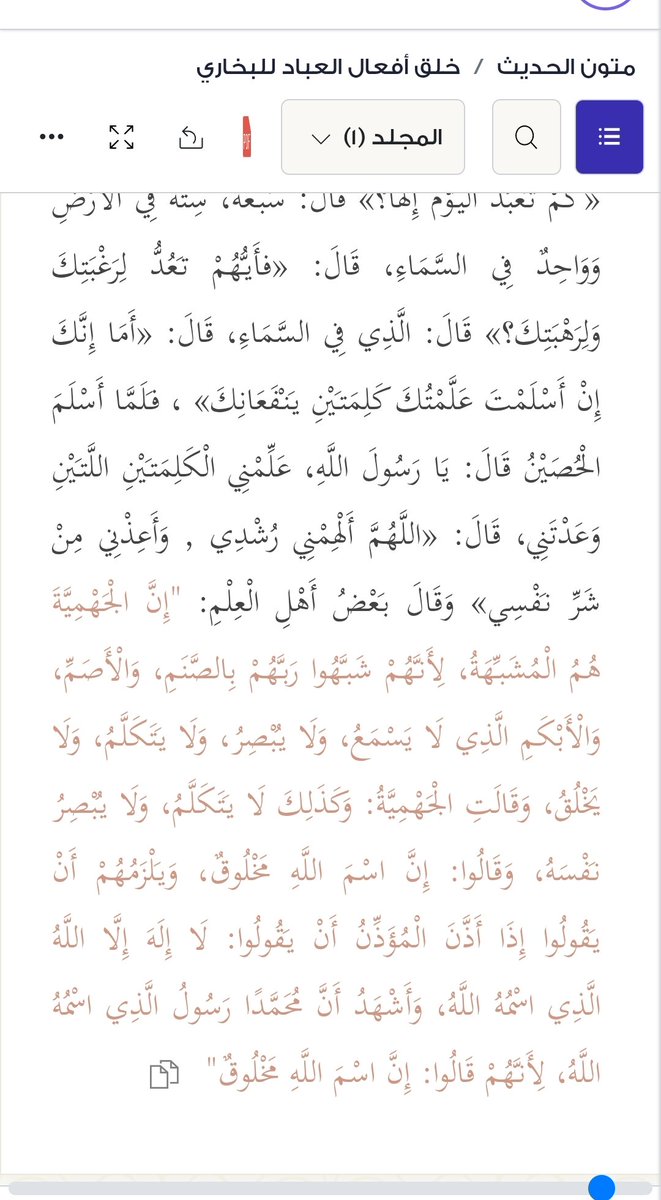 متون الحديث / خلق أفعال العباد للبخاري
المجلد (١)
PDF
«كَمْ تَعْبُدُ الْيَوْمَ إِلَهًا؟» قَالَ: سَبْعَةً، سِتَّةً فِي الْأَرْضِ
وَوَاحِدٌ فِي السَّمَاءِ، قَالَ: «فَأَيُّهُمْ تَعُدُّ لِرَغْبَتِكَ
وَلِرَهْبَتِكَ؟» قَالَ: الَّذِي فِي السَّمَاءِ، قَالَ: «أَمَا إِنَّكَ
إِنْ أَسْلَمْتَ عَلَّمْتُكَ كَلِمَتَيْنِ يَنْفَعَانِكَ» ، فَلَمَّا أَسْلَمَ
الْحُصَيْنُ قَالَ: يَا رَسُولَ اللَّهِ، عَلِّمْنِي الْكَلِمَتَيْنِ اللَّتَيْنِ
وَعَدْتَنِي، قَالَ: «اللَّهُمَّ أَلْهِمْنِي رُشْدِي , وَأَعِذْنِي مِنْ
شَرِّ نَفْسِي» وَقَالَ بَعْضُ أَهْلِ الْعِلْمِ: "إِنَّ الْجَهْمِيَّةَ
هُمُ الْمُشَبِّهَةُ، لِأَنَّهُمْ شَبَّهُوا رَبَّهُمْ بِالصَّنَمِ، وَالْأَصَمِّ،
وَالْأَبْكَمِ الَّذِي لَا يَسْمَعُ، وَلَا يُبْصِرُ، وَلَا يَتَكَلَّمُ، وَلَا
يَخْلُقُ، وَقَالَتِ الْجَهْمِيَّةُ: وَكَذَلِكَ لَا يَتَكَلَّمُ، وَلَا يُبْصِرُ
نَفْسَهُ، وَقَالُوا: إِنَّ اسْمَ اللَّهِ مَخْلُوقٌ، وَيَلْزَمُهُمْ أَنْ
يَقُولُوا إِذَا أَذَّنَ الْمُؤَذِّنُ أَنْ يَقُولُوا: لَا إِلَهَ إِلَّا اللَّهُ
الَّذِي اسْمُهُ اللَّهُ، وَأَشْهَدُ أَنَّ مُحَمَّدًا رَسُولُ الَّذِي اسْمُهُ
اللَّهُ، لِأَنَّهُمْ قَالُوا: إِنَّ اسْمَ اللَّهِ مَخْلُوقٌ"